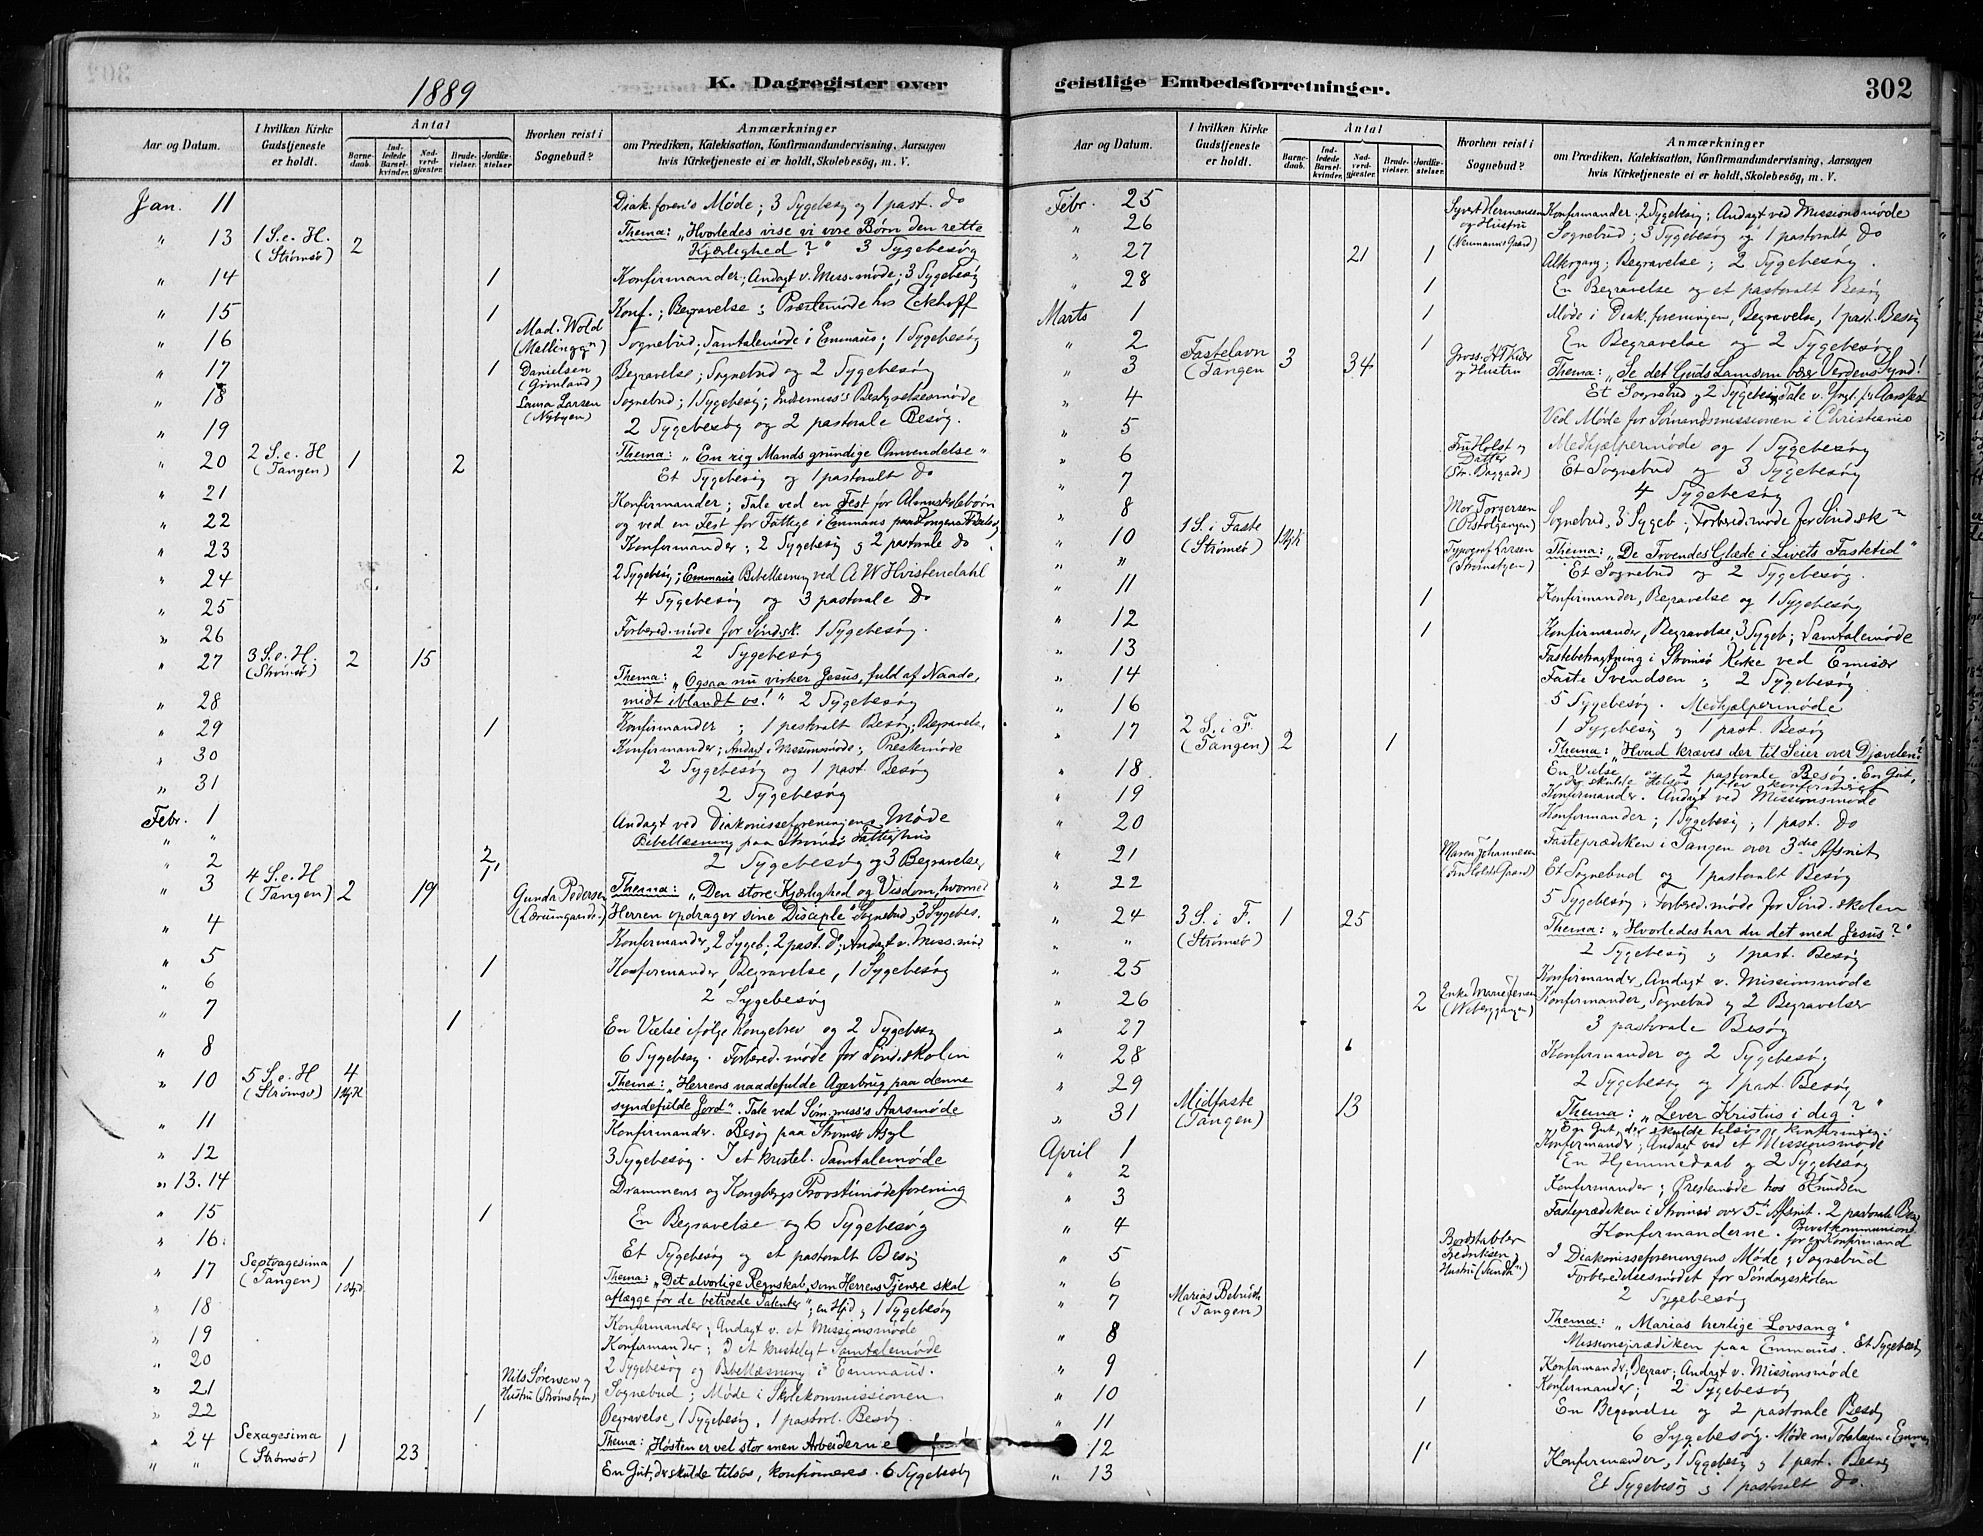 302
1889
K. Dagregister over
geistlige Embedsforretninger.
Aar og Datum.
I hvilken Kirke Gudstjeneste er holdt.
Antal
Barnedaab.
Indledede Barselkvinder.
Nadverdgjæster.
Brudevielser.
Jordfæstelser
Hvorhen reist i Sognebud?
Anmærkninger
om Prædiken, Katekisation, Konfirmandundervisning, Aarsagen
hvis Kirketjeneste ei er holdt, Skolebesøg, m. V.
Jan. 11 Diak. foren's Møde; 3 Sygebesøg og 1 past. do
" 13 1 S. e. H. (Strømsø) 2 Thema: "Hvorledes vise vi vore Børn den rette
Kjærlighed?" 3 Sygebesøg
" 14 1 Konfirmander; Andagt v. Miss.møde; 3 Sygebesøg
" 15 1 Konf.; Begravelse; Præstemøde hos Eckhoff
" 16 Mad. Wold Sognebud; Samtalemøde i Emmaus; 1 Sygebesøg
" 17 1 Danielsen (Grønland) Begravelse; Sognebud og 2 Sygebesøg
" 18 Laura Larsen (Nybyen) Sognebud; 1 Sygebesøg; Indremiss's Bestyrelsesmøde
" 19 2 Sygebesøg og 2 pastorale Besøg.
" 20 2 S. e. H (Tangen) 1 2 Thema: "En rig Mands grundige Omvendelse"
Et Sygebesøg og 1 pastoralt do
" 21 Konfirmander; Tale ved en Fest for Almuskolebørn
" 22 og ved en Fest for Fattige i Emmaus
" 23 Konfirmander; 2 Sygebesøg og 2 pastorale do
" 24 2 Sygebesøg; Emmaus Bibellæsning ved A W Hvistendahl
" 25 4 Sygebesøg og 3 pastorale do
" 26 Forbered.møde for Sønd.sk. 1 Sygebesøg.
" 27 3 S. e. H. (Strømsø) 2 15 2 Sygebesøg
Thema: "Ogsaa nu virker Jesus, fuld af Naade,
" 28 midt iblandt os!" 2 Sygebesøg
" 29 1 Konfirmander; 1 pastoralt Besøg; Begravelse
" 30 Konfirmander; Andagt i Missionsmøde; Prestemøde
2 Sygebesøg og 1 past. Besøg
" 31 2 Sygebesøg
Febr. 1 Andagt ved Diakonisseforeningens Møde
" Bibellæsning paa Strømsø Fattighus
" 2 2 Sygebesøg og 3 Begravelser
" 3 4 S. e. H (Tangen) 2 19 Gunda Pedersen Thema: "Den store Kjærlighed og Visdom, hvormed
Herren opdrager sine Disciple" Sognebud, 3 Sygebes.
" 4 Konfirmander, 2 Sygeb. 2 past. do; Andagt v. Miss.mød
" 5 1 Konfirmander, Begravelse, 1 Sygebesøg
" 6 2 Sygebesøg
" 7 1 En Vielse ifølge Kongebrev og 2 Sygebesøg
" 8 6 Sygebesøg. Forbered.møde for Sønd.skolen
" 10 5 S. e. H (Strømsø) 4 Thema: "Herrens naadefulde Agerbrug paa denne
syndefulde Jord". Tale ved Søm.miss's Aarsmøde
" 11 Konfirmander. Besøg paa Strømsø Asyl
" 12 3 Sygebesøg. I et kristel. Samtalemøde
" 13. 14 Drammens og Kongbergs Provstimødeforening
" 15 1 En Begravelse og 6 Sygebesøg
" 16. Et Sygebesøg og et pastoralt Besøg
" 17 Septuagesima (Tangen) 1 1 Hjd. Thema: "Det alvorlige Regnskab, som Herrens Tjenere skal
aflægge for de betroede Talenter"; en Hjd og 1 Sygebesøg
" 18 Konfirmander; Andagt v. et Missionsmøde
" 19 Konfirmander; I et kristeligt Samtalemøde
" 20 2 Sygebesøg og Bibellæsning i Emmaus.
" 21 Nils Sørensen og Hustru (Strømsbyen) Sognebud; Møde i Skolekommissionen
" 22 1 Begravelse, 1 Sygebesøg, 1 pastorl. Besøg.
" 24 Sexagesima (Strømsø) 1 23 Thema: "Høsten er vel stor men Arbeiderne
" " En Gut, der skulde tilsøs, konfirmeres. 6 Sygebesøg
Aar og Datum.
I hvilken Kirke Gudstjeneste er holdt.
Antal
Barnedaab.
Indledede Barselkvinder.
Nadverdgjæster.
Brudevielser.
Jordfæstelser.
Hvorhen reist i Sognebud?
Anmærkninger
om Prædiken, Katekisation, Konfirmandundervisning, Aarsagen
hvis Kirketjeneste ei er holdt, Skolebesøg, m. V.
Febr. 25 Syvert Hermansen og Hustru (Neumanns Gaard) Konfirmander; 2 Sygebesøg; Andagt ved Missionsmøde
" 26 Sognebud; 3 Sygebesøg og 1 pastoralt do
" 27 21 1 Altergang; Begravelse; 2 Sygebesøg.
" 28 1 En Begravelse og et pastoralt Besøg
Marts 1 1 Møde i Diak.foreningen, Begravelse, 1 past. Besøg
" 2 1 En Begravelse og 2 Sygebesøg
" 3 Fastelavn (Tangen 3 34 og Hustru Thema: "Se det Guds Lam som bærer Verdens Synd!
" 4 Et Sognebud og 2 Sygebesøg, Tale v.
" 5 Ved Møde for Sømandsmissionen i Christiania
" 6 Fru Holst og Datter Medhjælpermøde og 1 Sygebesøg
" 7 Et Sognebud og 3 Sygebesøg
" 8 4 Sygebesøg
" 10 1 S. i Faste (Strømsø) Mor Torgersen (Pistolgangen) Sognebud, 3 Sygeb; Forbered.møde for Sønd.sk
" " Typograf Larsen Thema: "De Troendes Glede i Livets Fastetid"
Et Sognebud og 2 Sygebesøg.
" 11 1 Konfirmander, Begravelse og 1 Sygebesøg
" 12 1 Konfirmander, Begravelse, 3 Sygeb; Samtalemøde
" 13 Fastebetragtning i Strømsø Kirke ved Emisær
" 14 Svendsen; 2 Sygebesøg.
" 16 5 Sygebesøg. Medhjælpermøde
" 17 2 S. i F. (Tangen) 2 1 1 Sygebesøg og 1 past. Besøg
Thema: "Hvad kræves der til Seier over Djævelen?"
" 18 En Vielse og 2 pastorale Besøg. En Gut,
der skulde tilsøs blev konfirmeret
" 19 Konfirmander. Andagt ved Missionsmøde
" 20 Konfirmander; 1 Sygebesøg; 1 past. do
" 21 Maren Johannesen Fasteprædiken i Tangen over 3die Afsnit
" 22 Et Sognebud og 1 pastoralt Besøg
5 Sygebesøg; Forbered.møde for Sønd.skolen
" 24 3 S. i F. (Strømsø) 1 25 Thema: "Hvorledes har du det med Jesus?"
" " 2 Sygebesøg og 1 past. Besøg
" 25 Konfirmander, Andagt v. Missionsmøde
" 26 2 Enke Marie Jensen Konfirmander, Sognebud og 2 Begravelser
" 27 3 pastorale Besøg
" 28 Konfirmander og 2 Sygebesøg
" 29 2 Sygebesøg og 1 past. Besøg
" 31 Midfaste (Tangen) 13 Thema: "Lever Kristus i dig?"
En Gut, der skulde tilsøs, konfirmeres.
April 1 Konfirmander; Andagt ved et Missionsmøde
" 2 En Hjemmedaab og 2 Sygebesøg
" 3 Konfirmander; Prestemøde hos Knudsen
Fasteprædiken i Strømsø over 5te Afsnit. 2 pastorale Besøg
" 4 Konfirmanderne. Privatkommunion for en Konfirmand
" 5 Bordstabler Fredriksen Hustru I Diakonisseforeningens Møde; Sognebud
" 6 Forberedelsesmødet for Søndagsskolen
" 7 Marias Bebud. (Tangen) 2 Sygebesøg
Thema: "Marias herlige Lovsang"
" 8 Missionsprædiken paa Emmaus. Et Sygebesøg
" 9 1 Konfirmander; Begrav; Andagt v. Missionsmøde
" 10 Konfirmander; 2 Sygebesøg
" 11 1 En Begravelse og 2 pastorale Besøg
6 Sygebesøg. Møde om Totalsagen i Emmaus
" 12 1 Konfirmander, 1 Sygebesøg og 1 past. Besøg
" 13 Et Sygebesøg og 1 pastoralt do.